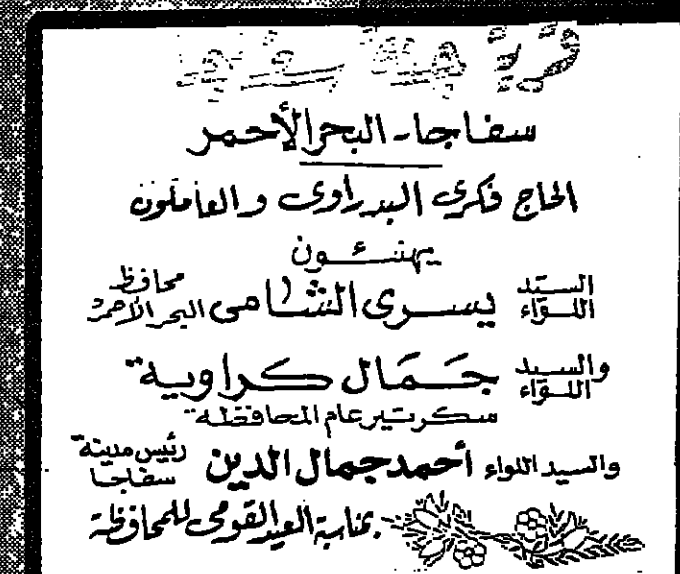 سفاجا - البحر الأحمر
الحاج فكرى البدراوى والعاملون
يهنئون
السيد اللواء يسرى الشامى محافظ البحر الأحمر
والسيد اللواء جمال كراوية
سكرتير عام المحافظة
والسيد اللواء أحمد جمال الدين رئيس مدينة سفاجا
بمناسبة العيد القومى للمحافظة